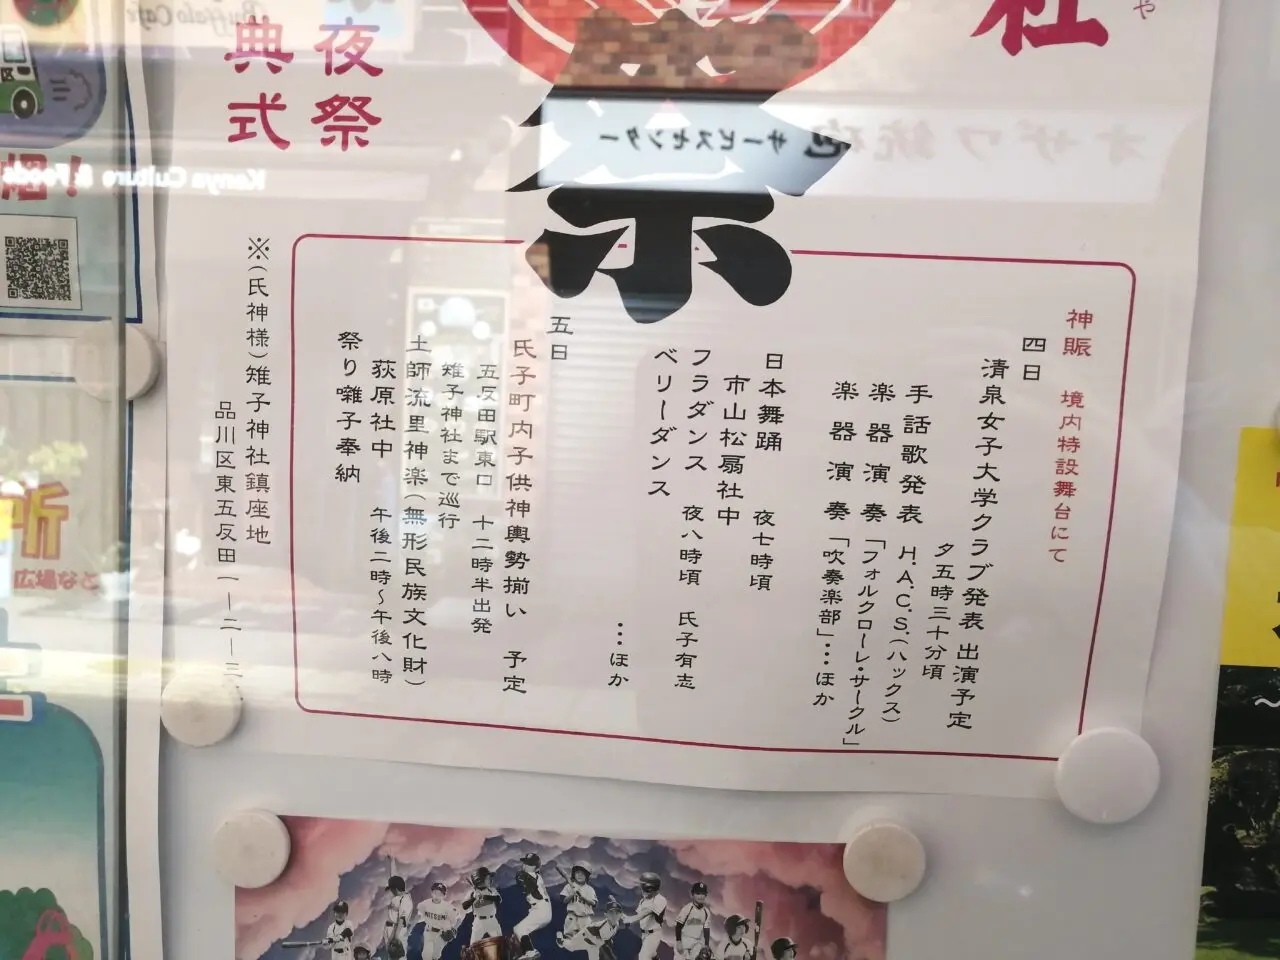 社
や
祭
夜祭
典式
神賑 境内特設舞台にて
四日
清泉女子大学クラブ発表 出演予定
夕五時三十分頃
手話歌発表 H.A.C.S.(ハックス)
楽器演奏「フォルクローレ・サークル」
楽器演奏「吹奏楽部」…ほか
日本舞踊 夜七時頃
市山松扇社中
フラダンス 夜八時頃 氏子有志
ベリーダンス
…ほか
五日
氏子町内子供神輿勢揃い 予定
五反田駅東口 十二時半出発
雉子神社まで巡行
土師流里神楽(無形民族文化財)
荻原社中 午後二時~午後八時
祭り囃子奉納
※(氏神様)雉子神社鎮座地
品川区東五反田一ー二ー三
オザワ銃砲
サービスセンター
Buffalo Cafe
Kenya Culture & Foods